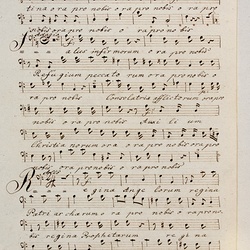 tina ora pro nobis o ra pro nobis o ra pro
nobis ora pro nobis o ra pro nobis
S = = = alus infirmorum o ra pro nobis
Refugium peccato rum ora pro nobis o
ra pro nobis Consolatrix afflictorum ora pro
nobis o ro ra pro nobis Auxi li um
Christia norum ora o ra pro nobis ora pro
nobis ora pro nobis o ra pro nobis
R = = = egina Ange lorum regina
Patri ar charum o ra pro nobis o ra pro no
bis regina Prophetarum re gi na